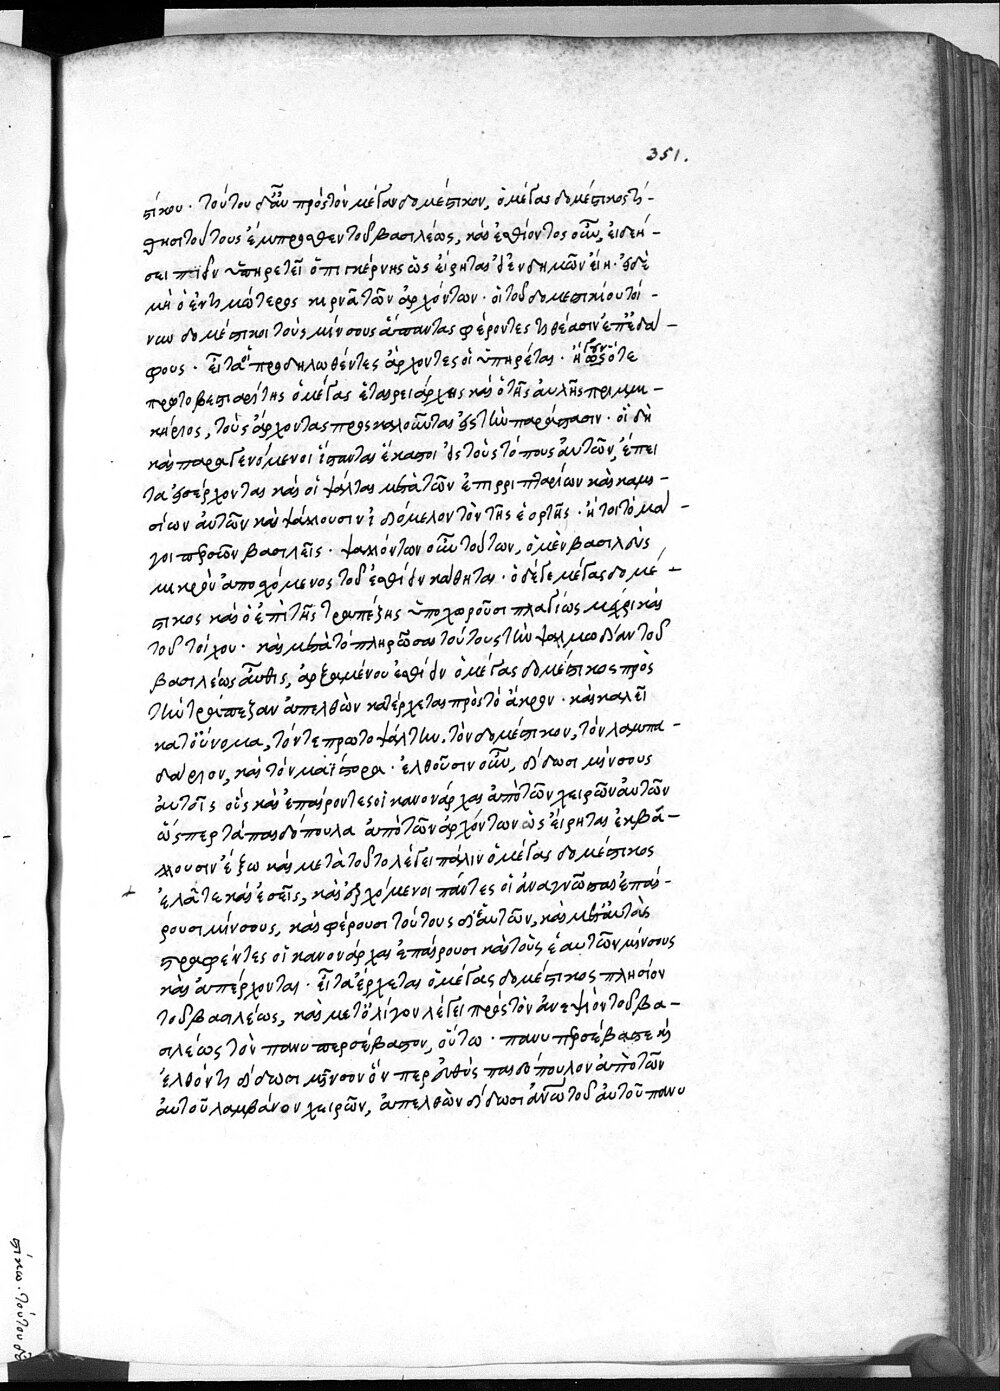 351.
στίκου· τούτου δ' αὖ πρὸς τὸν μέγαν δομέστικον, ὁ μέγας δομέστικος τί-
θησι τούτους ἔμπροσθεν τοῦ βασιλέως, καὶ ἐσθίοντος οὖν, εἰ δεή-
σει πιεῖν ὑπηρετεῖ ὁ πιγκέρνης ὡς εἴρηται εἰ ἐνδημῶν εἴη· εἰ δὲ
μὴ ὁ ἐντιμώτερος κιρνᾷ τῶν ἀρχόντων· οἱ τοῦ δομεστικίου τοί-
νυν δομέστικοι τοὺς μίνσους ἅπαντας φέροντες τιθέασιν ἐπ' ἐδά-
φους· εἶτα οἱ προδηλωθέντες ἄρχοντες οἱ ὑπηρέται· ἤγουν ὅτε
πρωτοβεστιαρίτης ὁ μέγας ἑταιρειάρχης καὶ ὁ τῆς αὐλῆς πριμμι-
κήριος, τοὺς ἄρχοντας προσκαλοῦνται εἰς τὴν παράστασιν· οἳ δὴ
καὶ παραγενόμενοι ἵστανται ἕκαστοι εἰς τοὺς τόπους αὐτῶν, ἔπει
τα εἰσέρχονται καὶ οἱ ψάλται μετὰ τῶν ἐπιρριπταρίων καὶ καμι-
σίων αὐτῶν καὶ ψάλλουσιν ἰδιόμελον τὸν τῆς ἑορτῆς· ἤτοι τὸ μά-
γοι περσῶν βασιλεῖς· ψαλλόντων οὖν τοῦτων, ὁ μὲν βασιλεὺς
μικρὸν ἀποσχόμενος τοῦ ἐσθίειν κάθηται· ὁ δέ γε μέγας δομέ-
στικος καὶ ὁ ἐπὶ τῆς τραπέζης ὑποχωροῦσι πλαγίως μέχρι καὶ
τοῦ τοίχου· καὶ μετὰ τὸ πληρῶσαι τούτους τὴν ψαλμωδίαν τοῦ
βασιλέως αὖθις, ἀρξαμένου ἐσθίειν ὁ μέγας δομέστικος πρὸς
τὴν τράπεζαν ἀπελθὼν κατέρχεται πρὸς τὸ ἄκρον· καὶ καλεῖ
κατ' οὔνομα, τόν τε πρωτοψάλτην. τὸν δομέστικον, τὸν λαμπα-
δάριον, καὶ τὸν μαΐστορα· ἐλθοῦσιν οὖν, δίδωσι μίνσους
αὐτοῖς οὓς καὶ ἐπαίροντες οἱ κανονάρχαι ἀπὸ τῶν χειρῶν αὐτῶν
ὥσπερ τὰ παιδόπουλα ἀπὸ τῶν ἀρχόντων ὡς εἴρηται ἐκβά-
λλουσιν ἔξω καὶ μετὰ τοῦτο λέγει πάλιν ὁ μέγας δομέστικος
ἐλᾶτε καὶ ἐσεῖς, καὶ ἐρχόμενοι πάντες οἱ ἀναγνῶσται ἐπαί-
ρουσι μίνσους, καὶ φέρουσι τούτους δι' ἑαυτῶν, καὶ μετ' αὐτοὺς
στραφέντες οἱ κανονάρχαι ἐπαίρουσι καὶ τοὺς ἑαυτῶν μίνσους
καὶ ἀπέρχονται· εἶτα ἔρχεται ὁ μέγας δομέστικος πλησίον
τοῦ βασιλέως, καὶ μετ' ὀλίγον λέγει πρὸς τὸν ἀνεψιὸν τοῦ βα-
σιλέως τὸν πανυπερσέβαστον, οὕτω· πανυπερσέβαστε καὶ
ἐλθόντι δίδωσι μῖνσον ὅν περ εὐθὺς παιδόπουλον ἀπὸ τῶν
αὐτοῦ λαμβάνον χειρῶν, ἀπελθὼν δίδωσι ἀνω τοῦ αὐτοῦ πανυ
στίκω· τούτου δὲ